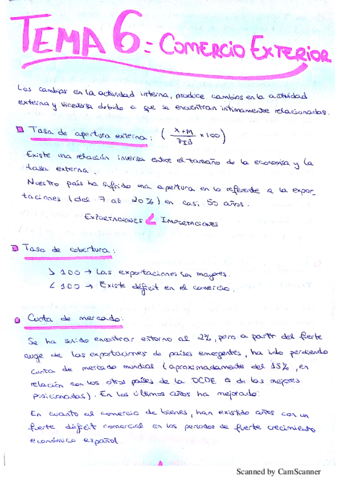 TEMA 6: COMERCIO EXTERIOR
Los cambios en la actividad interna, produce cambios en la actividad
externa y viceversa debido a que se encuentran íntimamente relacionadas.
Tasa de apertura externa: (X+M/PIB x100)
Existe una relación inversa entre el tamaño de la economía y la
tasa externa.
Nuestro país ha sufrido una apertura en lo referente a la expor-
taciones (del 7 al 20%) en casi 50 años.
EXPORTACIONES < IMPORTACIONES
Tasa de cobertura:
> 100 → Las exportaciones son mayores.
< 100 → Existe déficit en el comercio.
Cuota de mercado:
Se ha sabido encontrar entorno al 2%, pero a partir del fuerte
auge de las exportaciones de países emergentes, ha ido perdiendo
cuota de mercado mundial (aproximadamente del 15%, en
relación con los otros países de la OCDE de los mejores
posicionados). En los últimos años ha mejorado.
En cuanto al comercio de bienes, han existido años con un
fuerte déficit comercial en los periodos de fuerte crecimiento
económico español.
Scanned by CamScanner